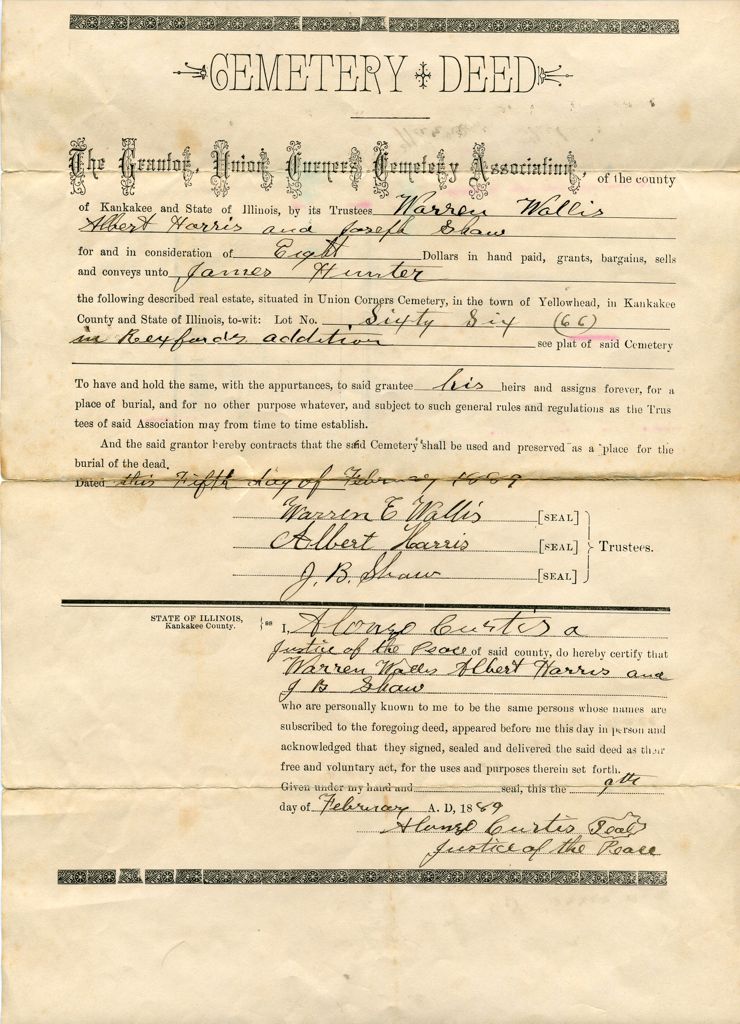 CEMETERY DEED
The Grantor, Union Corners Cemetery Association, of the county
of Kankakee and State of Illinois, by its Trustees Warren Wallis
Albert Harris and Joseph Shaw
for and in consideration of Eight Dollars in hand paid, grants, bargains, sells
and conveys unto James Hunter
the following described real estate, situated in Union Corners Cemetery, in the town of Yellowhead, in Kankakee
County and State of Illinois, to-wit: Lot No. Sixty Six (66)
in Rexford's addition see plat of said Cemetery
To have and hold the same, with the appurtances, to said grantee his heirs and assigns forever, for a
place of burial, and for no other purpose whatever, and subject to such general rules and regulations as the Trus
tees of said Association may from time to time establish.
And the said grantor hereby contracts that the said Cemetery shall be used and preserved as a place for the
burial of the dead.
Dated this Fifth day of February 1889
Warren E Wallis [SEAL]
Albert Harris [SEAL] Trustees.
J. B. Shaw [SEAL]
STATE OF ILLINOIS,
Kankakee County. } ss
I, Alonzo Curtis a
Justice of the Peace of said county, do hereby certify that
Warren Wallis Albert Harris and
J B Shaw
who are personally known to me to be the same persons whose names are
subscribed to the foregoing deed, appeared before me this day in person and
acknowledged that they signed, sealed and delivered the said deed as their
free and voluntary act, for the uses and purposes therein set forth.
Given under my hand and seal, this the 9th
day of February A. D, 1889
Alonzo Curtis Seal
Justice of the Peace